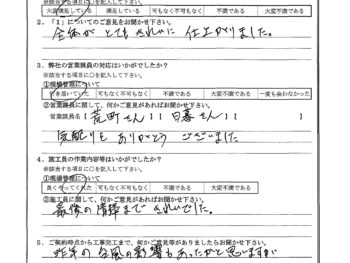 ※該当する項目に○を記入して下さい。
大変満足している 満足している 可もなく不可もなく 不満である 大変不満である
2.「1」についてのご意見をお聞かせ下さい。
全体が とても きれいに 仕上がりました。
3. 弊社の営業課員の対応はいかがでしたか?
※該当する項目に○を記入して下さい。
①現場管理について
行き届いていた 可もなく不可もなく 不満である 大変不満である 一度も会わなかった
②営業課員に関して、何かご意見があればお聞かせ下さい。
営業課員名【 荒町さん 】【 日暮さん 】【 】
気配りを ありがとう ございました
4. 施工員の作業内容等はいかがでしたか?
※該当する項目に○を記入して下さい。
①現場管理について
良くやってくれた 可もなく不可もなく 不満である 大変不満である
②施工員に関して、何かご意見があればお聞かせ下さい。
最後の清掃まで きれいでした。
5. ご契約時点から工事完工まで、何かご意見等がありましたらお聞かせ下さい。
昨年の台風の影響もあったかと思しますが